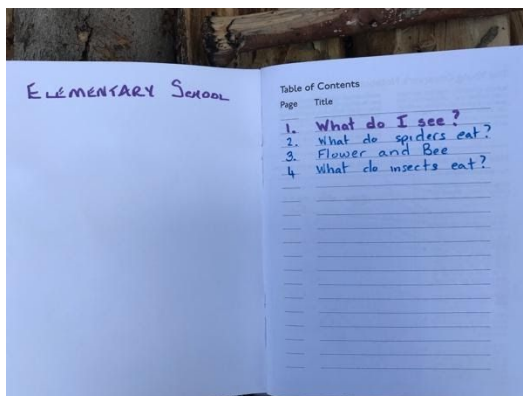 ELEMENTARY SCHOOL
Table of Contents
Page Title
1. What do I see?
2. What do spiders eat?
3. Flower and Bee
4 What do insects eat?